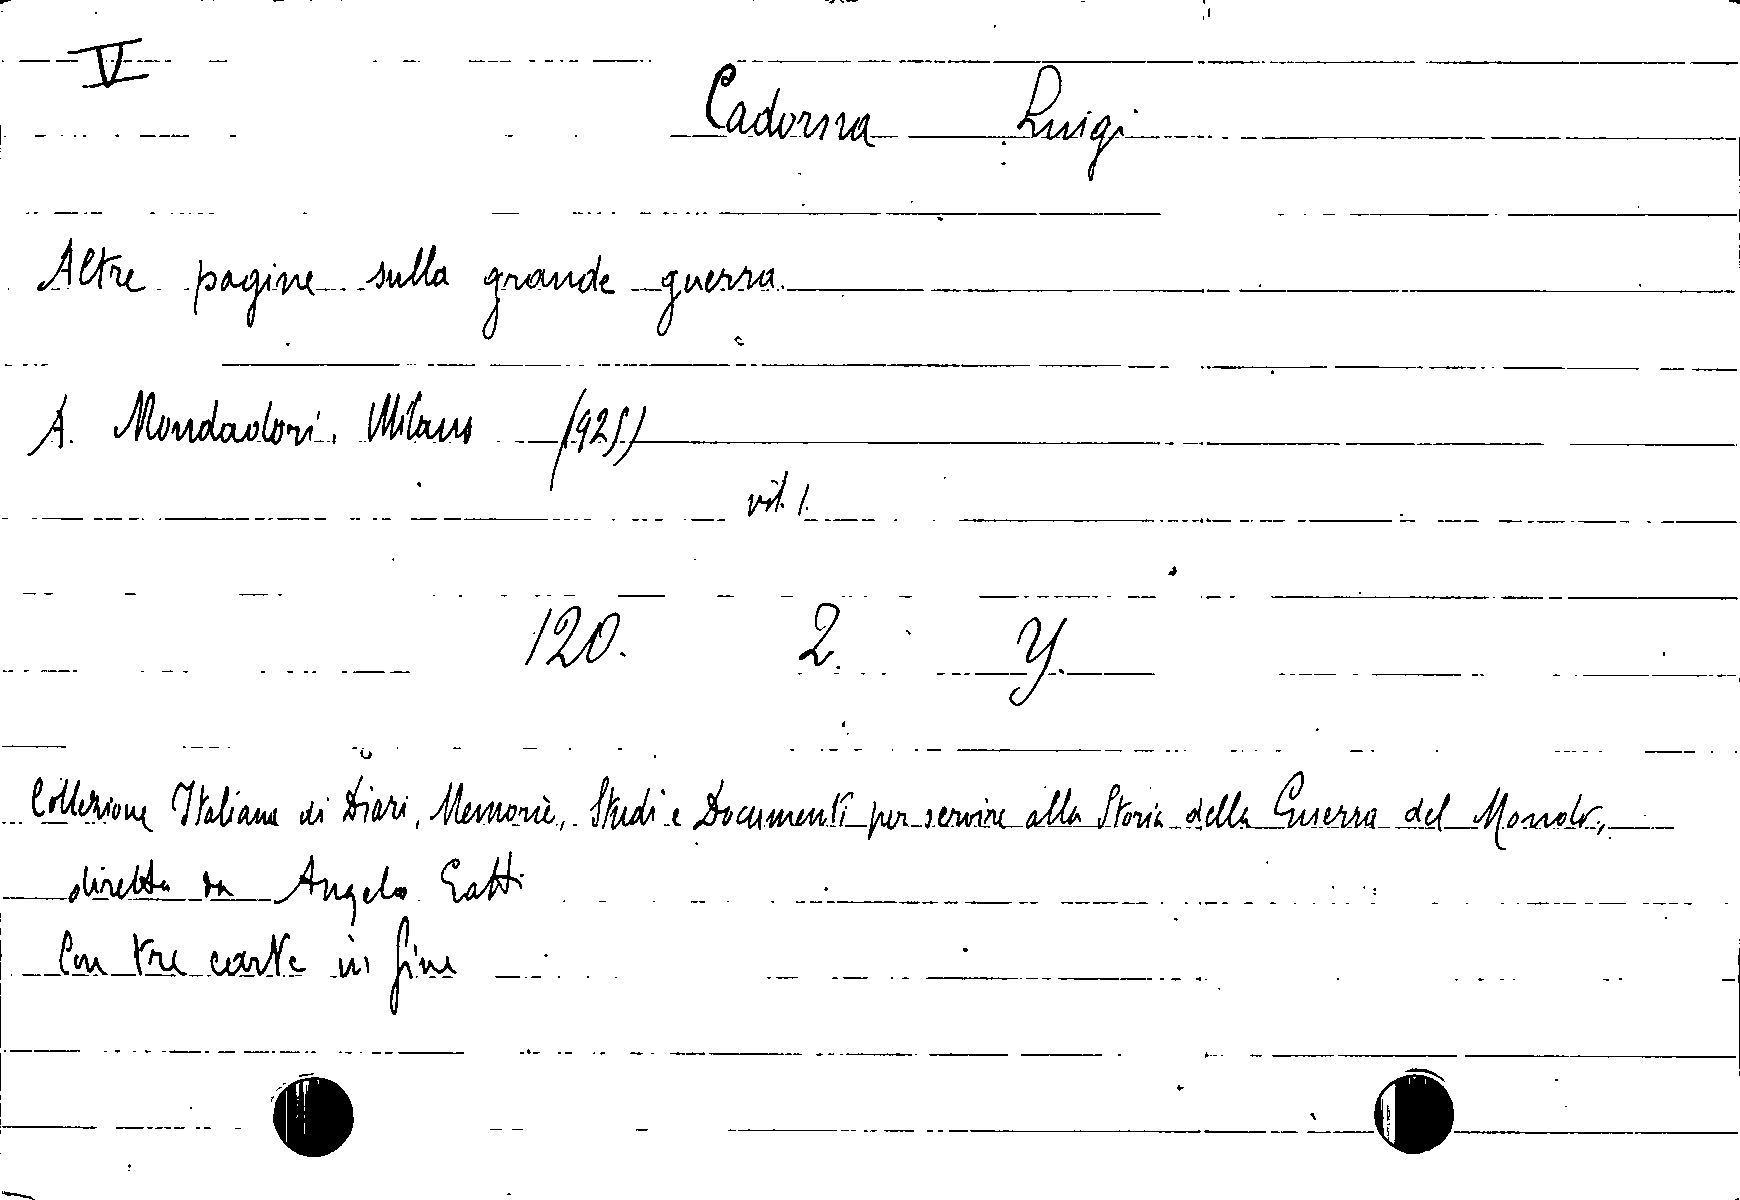 V
Cadorna Luigi
Altre pagine sulla grande guerra
A. Mondadori. Milano (1925)
vol. 1.
120. 2. Y.
Collezione Italiana di Diari, Memorie, Studi e Documenti per servire alla Storia della Guerra del Mondo,
diretta da Angelo Gatti
Con tre carte in fine